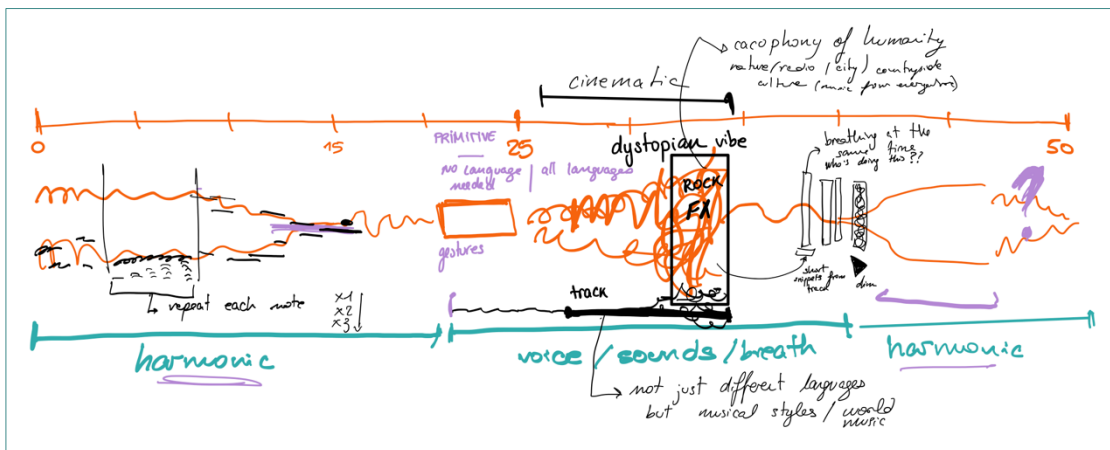 cacophony of humanity
nature/radio/city/countryside
culture (music from everywhere)
cinematic
0
15
25
50
PRIMITIVE
no language needed! | all languages
dystopian vibe
ROCK
FX
breathing at the
same time
who's doing this??
gestures
short
snippets from
track
dim
?
track
repeat each note
x1
x2
x3
harmonic
voice/sounds/breath
harmonic
not just different languages
but musical styles/world
music